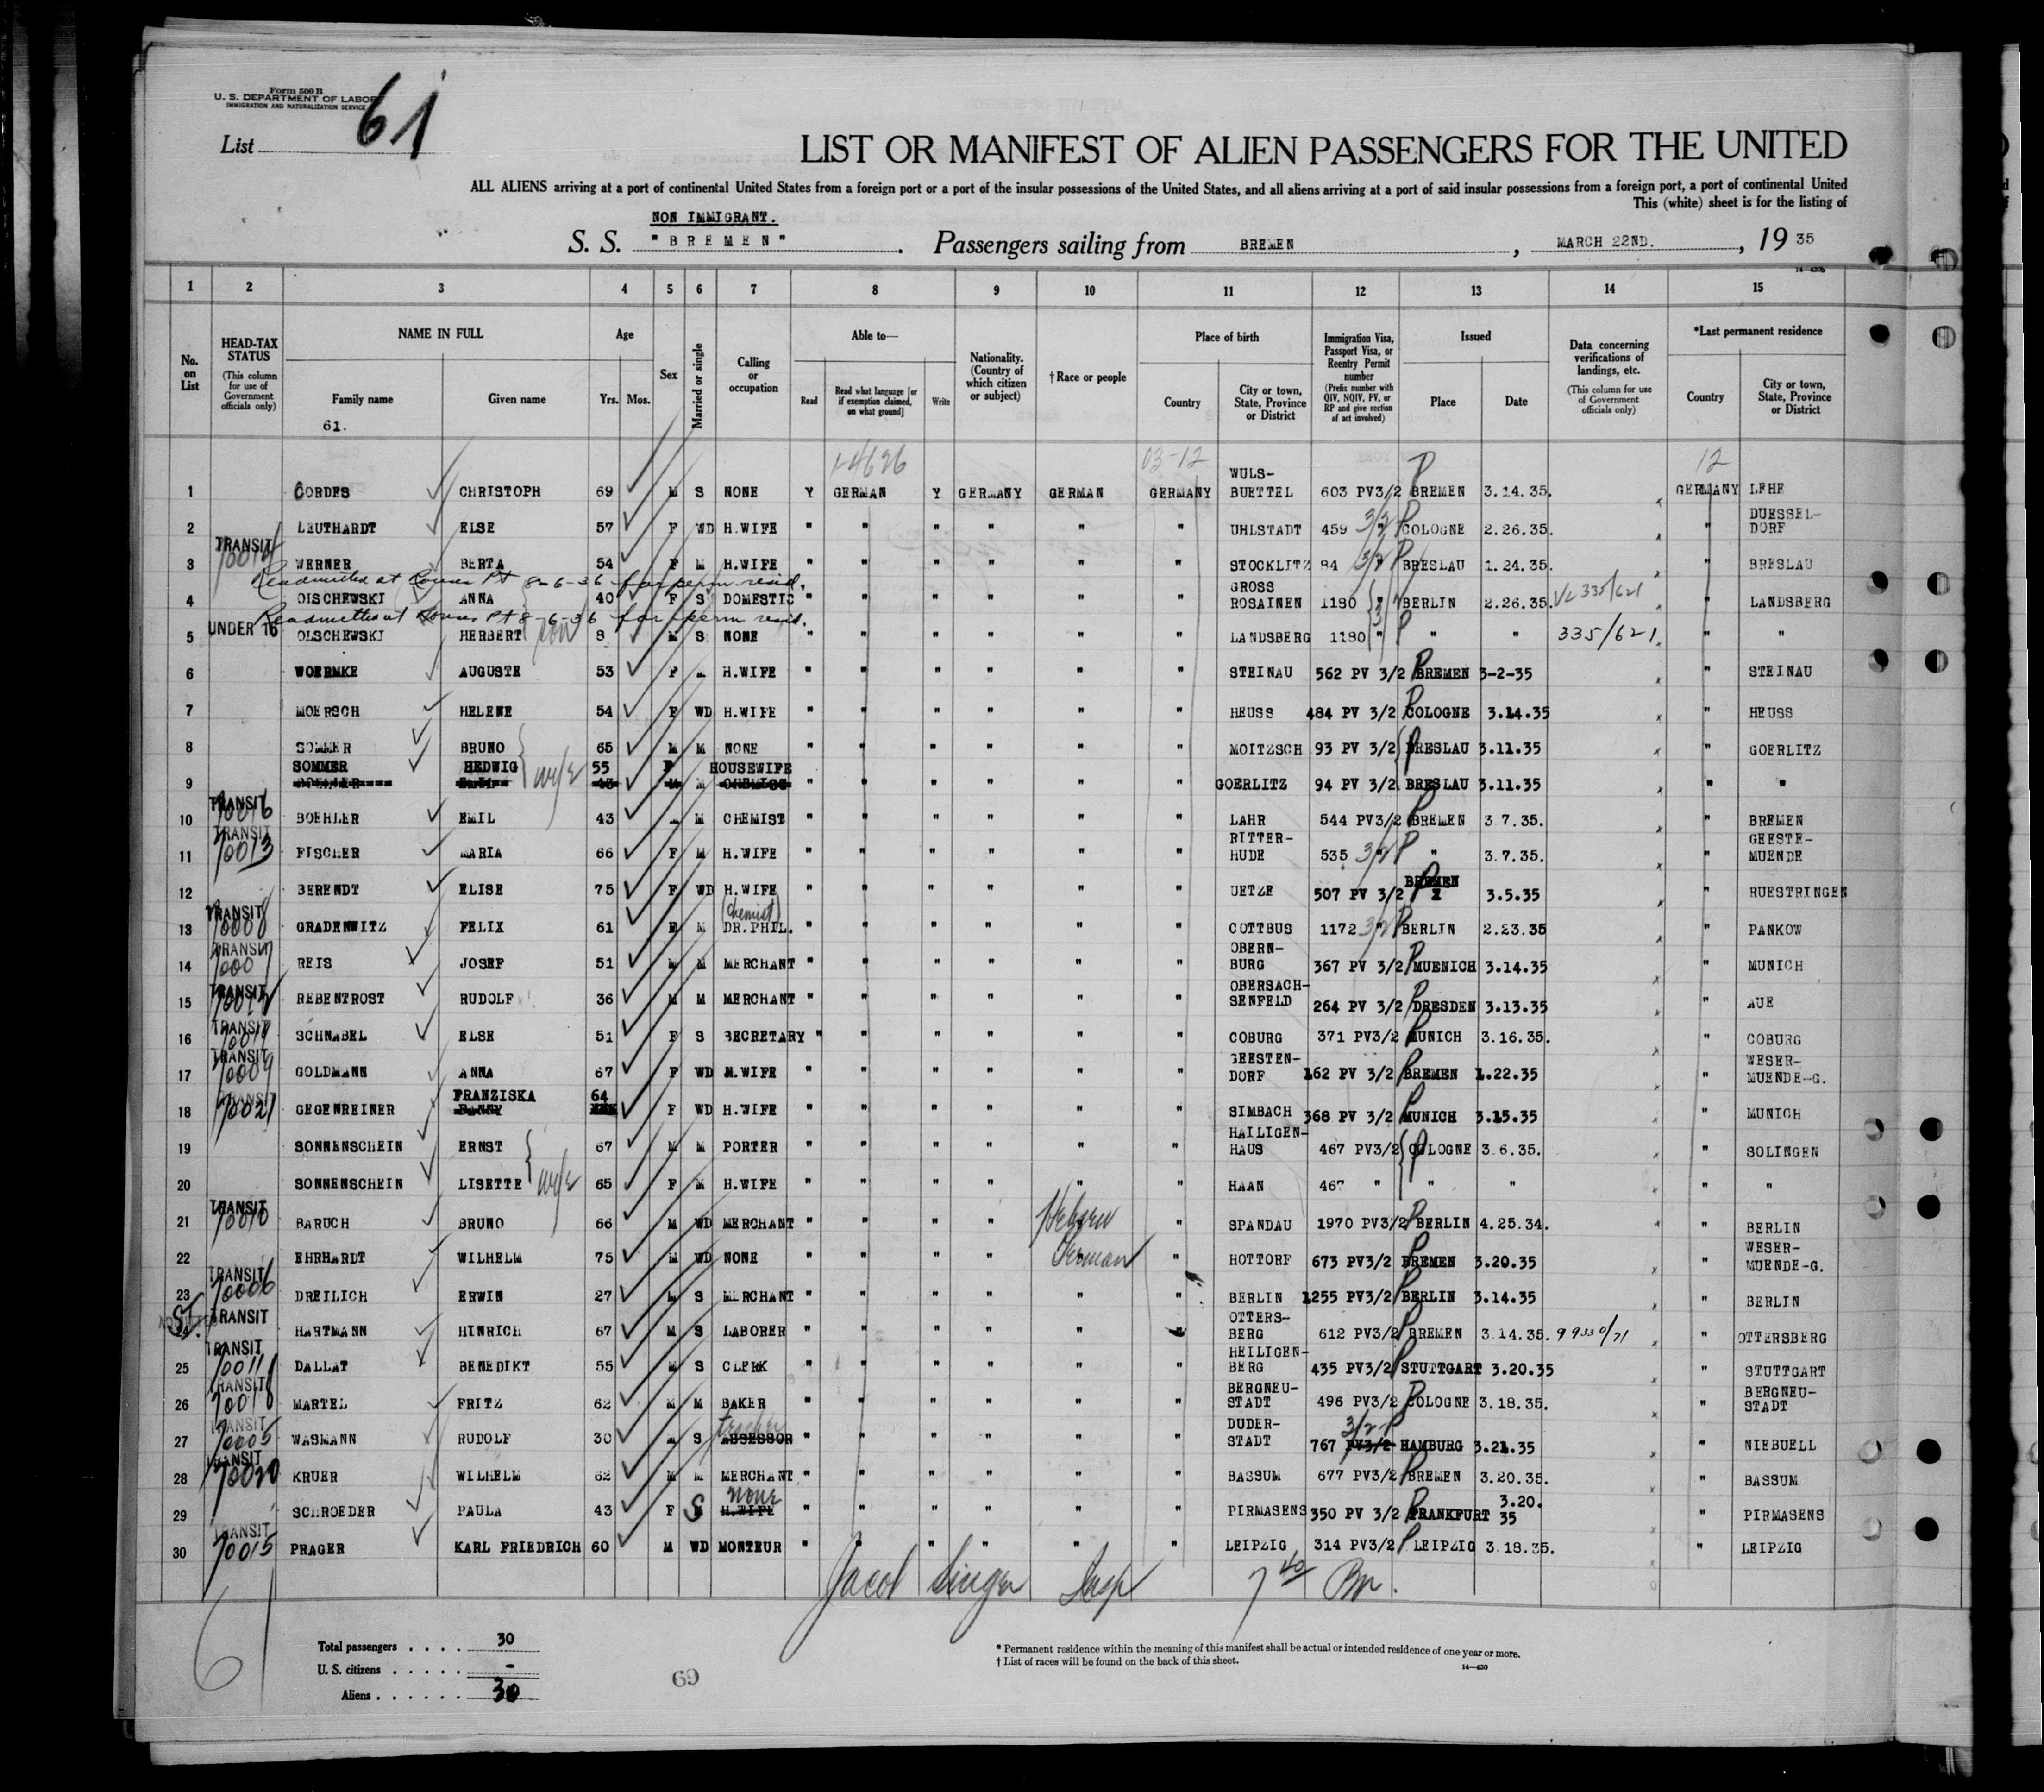 Form 500 B
U. S. DEPARTMENT OF LABOR
IMMIGRATION AND NATURALIZATION SERVICE
List 61
LIST OR MANIFEST OF ALIEN PASSENGERS FOR THE UNITED
ALL ALIENS arriving at a port of continental United States from a foreign port or a port of the insular possessions of the United States, and all aliens arriving at a port of said insular possessions from a foreign port, a port of continental United
This (white) sheet is for the listing of
NON IMMIGRANT.
S. S. "BREMEN". Passengers sailing from BREMEN, MARCH 22ND., 1935
14—430b
1 2 3 4 5 6 7 8 9 10 11 12 13 14 15
No. on List
HEAD-TAX STATUS (This column for use of Government officials only)
NAME IN FULL
Family name Given name
61.
Age Yrs. Mos.
Sex
Married or single
Calling or occupation
Able to—
Read Read what language [or if exemption claimed, on what ground] Write
Nationality. (Country of which citizen or subject)
†Race or people
Place of birth
Country City or town, State, Province or District
Immigration Visa, Passport Visa, or Reentry Permit number (Prefix number with QIV, NQIV, PV, or RP and give section of act involved)
Issued
Place Date
Data concerning verifications of landings, etc. (This column for use of Government officials only)
*Last permanent residence
Country City or town, State, Province or District
1-4626 03-12 12
1 CORDES CHRISTOPH 69 M S NONE Y GERMAN Y GERMANY GERMAN GERMANY WULS-BUETTEL 603 PV3/2 P BREMEN 3.14.35. GERMANY LEHE
2 LEUTHARDT ELSE 57 F WD H.WIFE " " " " " " UHLSTADT 459 3/2 P COLOGNE 2.26.35. " DUESSEL-DORF
3 TRANSIT WERNER BERTA 54 F M H.WIFE " " " " " " STOCKLITZ 84 3/2 P BRESLAU 1.24.35. " BRESLAU
Readmitted at Rouses Pt 8-6-36 for perm. resid.
4 OLSCHEWSKI ANNA 40 F S DOMESTIC " " " " " " GROSS ROSAINEN 1180 " BERLIN 2.26.35. VL 335/621 " LANDSBERG
Readmitted at Rouses Pt 8-6-36 for perm resid.
5 UNDER 16 OLSCHEWSKI HERBERT son 8 M S NONE " " " " " " LANDSBERG 1180 " P " " 335/621. " "
6 WOERMKE AUGUSTE 53 F M H.WIFE " " " " " " STEINAU 562 PV 3/2 P BREMEN 3-2-35 " STEINAU
7 MOERSCH HELENE 54 F WD H.WIFE " " " " " " HEUSS 484 PV 3/2 P COLOGNE 3.14.35 " HEUSS
8 SOMMER BRUNO 65 M M NONE " " " " " " MOITZSCH 93 PV 3/2 P BRESLAU 3.11.35 " GOERLITZ
9 SOMMER HEDWIG wife 55 F M HOUSEWIFE " " " " " " GOERLITZ 94 PV 3/2 BRESLAU 3.11.35 " "
10 TRANSIT 70016 BOEHLER EMIL 43 M M CHEMIST " " " " " " LAHR 544 PV3/2 P BREMEN 3.7.35. " BREMEN
11 TRANSIT 70013 FISCHER MARIA 66 F M H.WIFE " " " " " " RITTER-HUDE 535 3/2 P " 3.7.35. " GEESTE-MUENDE
12 BERENDT ELISE 75 F WD H.WIFE " " " " " " UETZE 507 PV 3/2 P BREMEN 3.5.35 " RUESTRINGEN
13 TRANSIT 70008 GRADENWITZ FELIX 61 M M (chemist) DR.PHIL. " " " " " " COTTBUS 1172 3/2 P BERLIN 2.23.35 " PANKOW
14 TRANSIT 70007 REIS JOSEF 51 M M MERCHANT " " " " " " OBERN-BURG 367 PV 3/2 P MUENICH 3.14.35 " MUNICH
15 TRANSIT REBENTROST RUDOLF 36 M M MERCHANT " " " " " " OBERSACH-SENFELD 264 PV 3/2 P DRESDEN 3.13.35 " AUE
16 TRANSIT SCHNABEL ELSE 51 F S SECRETARY " " " " " " COBURG 371 PV3/2 P MUNICH 3.16.35. " COBURG
17 TRANSIT 70009 GOLDMANN ANNA 67 F WD H.WIFE " " " " " " GEESTEN-DORF 162 PV 3/2 P BREMEN 1.22.35 " WESER-MUENDE-G.
18 TRANSIT 70021 GEGENREINER FRANZISKA FANNY 64 F WD H.WIFE " " " " " " SIMBACH 368 PV 3/2 P MUNICH 3.15.35 " MUNICH
19 SONNENSCHEIN ERNST 67 M M PORTER " " " " " " HAILIGEN-HAUS 467 PV3/2 P COLOGNE 3.6.35. " SOLINGEN
20 SONNENSCHEIN LISETTE wife 65 F M H.WIFE " " " " " " HAAN 467 " " " " "
21 TRANSIT 70010 BARUCH BRUNO 66 M WD MERCHANT " " " " Hebrew " SPANDAU 1970 PV3/2 P BERLIN 4.25.34. " BERLIN
22 EHRHARDT WILHELM 75 M WD NONE " " " " German " HOTTORF 673 PV3/2 P BREMEN 3.20.35 " WESER-MUENDE-G.
23 TRANSIT 70006 DREILICH ERWIN 27 M S MERCHANT " " " " " " BERLIN 1255 PV3/2 P BERLIN 3.14.35 " BERLIN
24 TRANSIT HARTMANN HINRICH 67 M S LABORER " " " " " " OTTERS-BERG 612 PV3/2 P BREMEN 3.14.35. 99330/71 " OTTERSBERG
25 TRANSIT 70011 DALLAT BENEDIKT 55 M S CLERK " " " " " " HEILIGEN-BERG 435 PV3/2 P STUTTGART 3.20.35 " STUTTGART
26 TRANSIT 70018 MARTEL FRITZ 62 M M BAKER " " " " " " BERGNEU-STADT 496 PV3/2 P COLOGNE 3.18.35. " BERGNEU-STADT
27 TRANSIT 70005 WASMANN RUDOLF 30 M S teacher ASSESSOR " " " " " " DUDER-STADT 767 PV3/2 3/2 P HAMBURG 3.21.35 " NIEBUELL
28 TRANSIT 70020 KRUER WILHELM 62 M M MERCHANT " " " " " " BASSUM 677 PV3/2 P BREMEN 3.20.35. " BASSUM
29 SCHROEDER PAULA 43 F S none H.WIFE " " " " " " PIRMASENS 350 PV 3/2 P FRANKFURT 3.20.35 " PIRMASENS
30 TRANSIT 70015 PRAGER KARL FRIEDRICH 60 M WD MONTEUR " " " " " " LEIPZIG 314 PV3/2 P LEIPZIG 3.18.35. " LEIPZIG
Jacob Singer Insp 7 40 Bm.
61
Total passengers . . . . 30
U. S. citizens . . . . . -
Aliens . . . . . . 30
69
* Permanent residence within the meaning of this manifest shall be actual or intended residence of one year or more.
† List of races will be found on the back of this sheet.
14—430